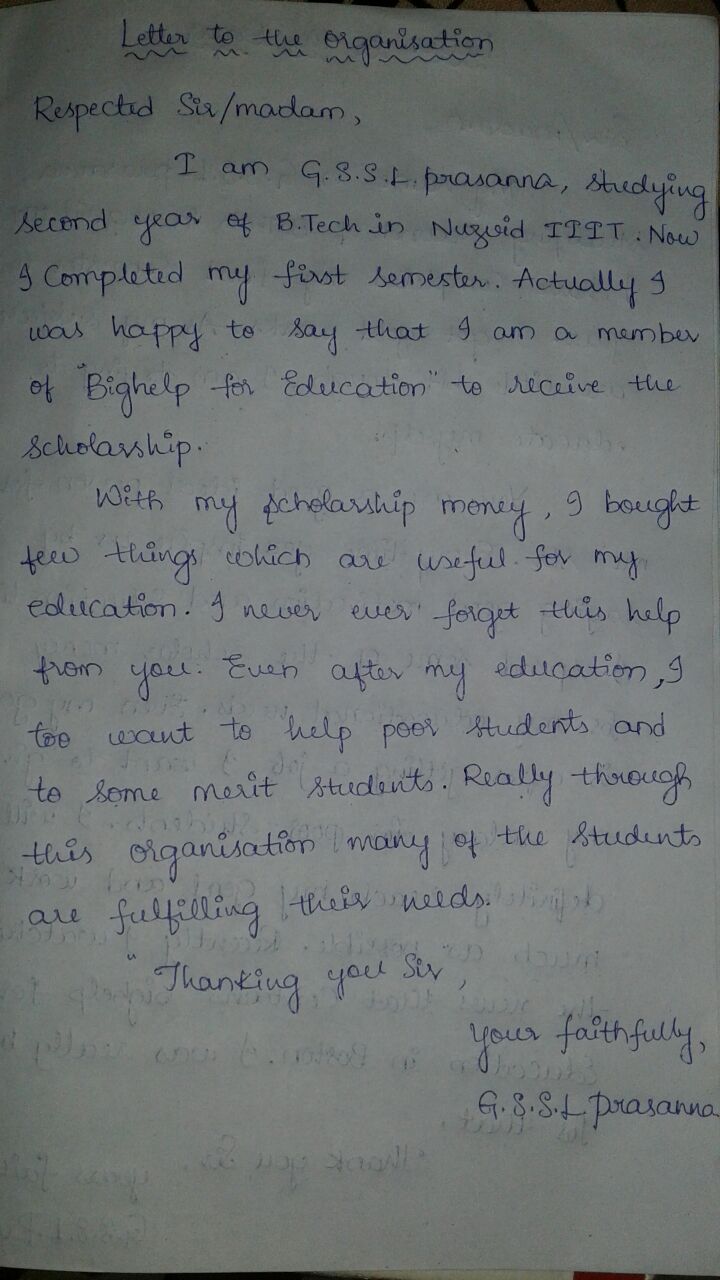 Letter to the organisation
Respected Sir/madam,
I am G.S.S.L.prasanna, studying
second year of B.Tech in Nuzvid IIIT. Now
I Completed my first semester. Actually I
was happy to say that I am a member
of "Bighelp for Education" to receive the
scholarship.
With my scholarship money, I bought
few things which are useful for my
education. I never ever forget this help
from you. Even after my education, I
too want to help poor students and
to some merit students. Really through
this organisation many of the students
are fulfilling their needs.
"Thanking you Sir,
Your faithfully,
G.S.S.L.prasanna